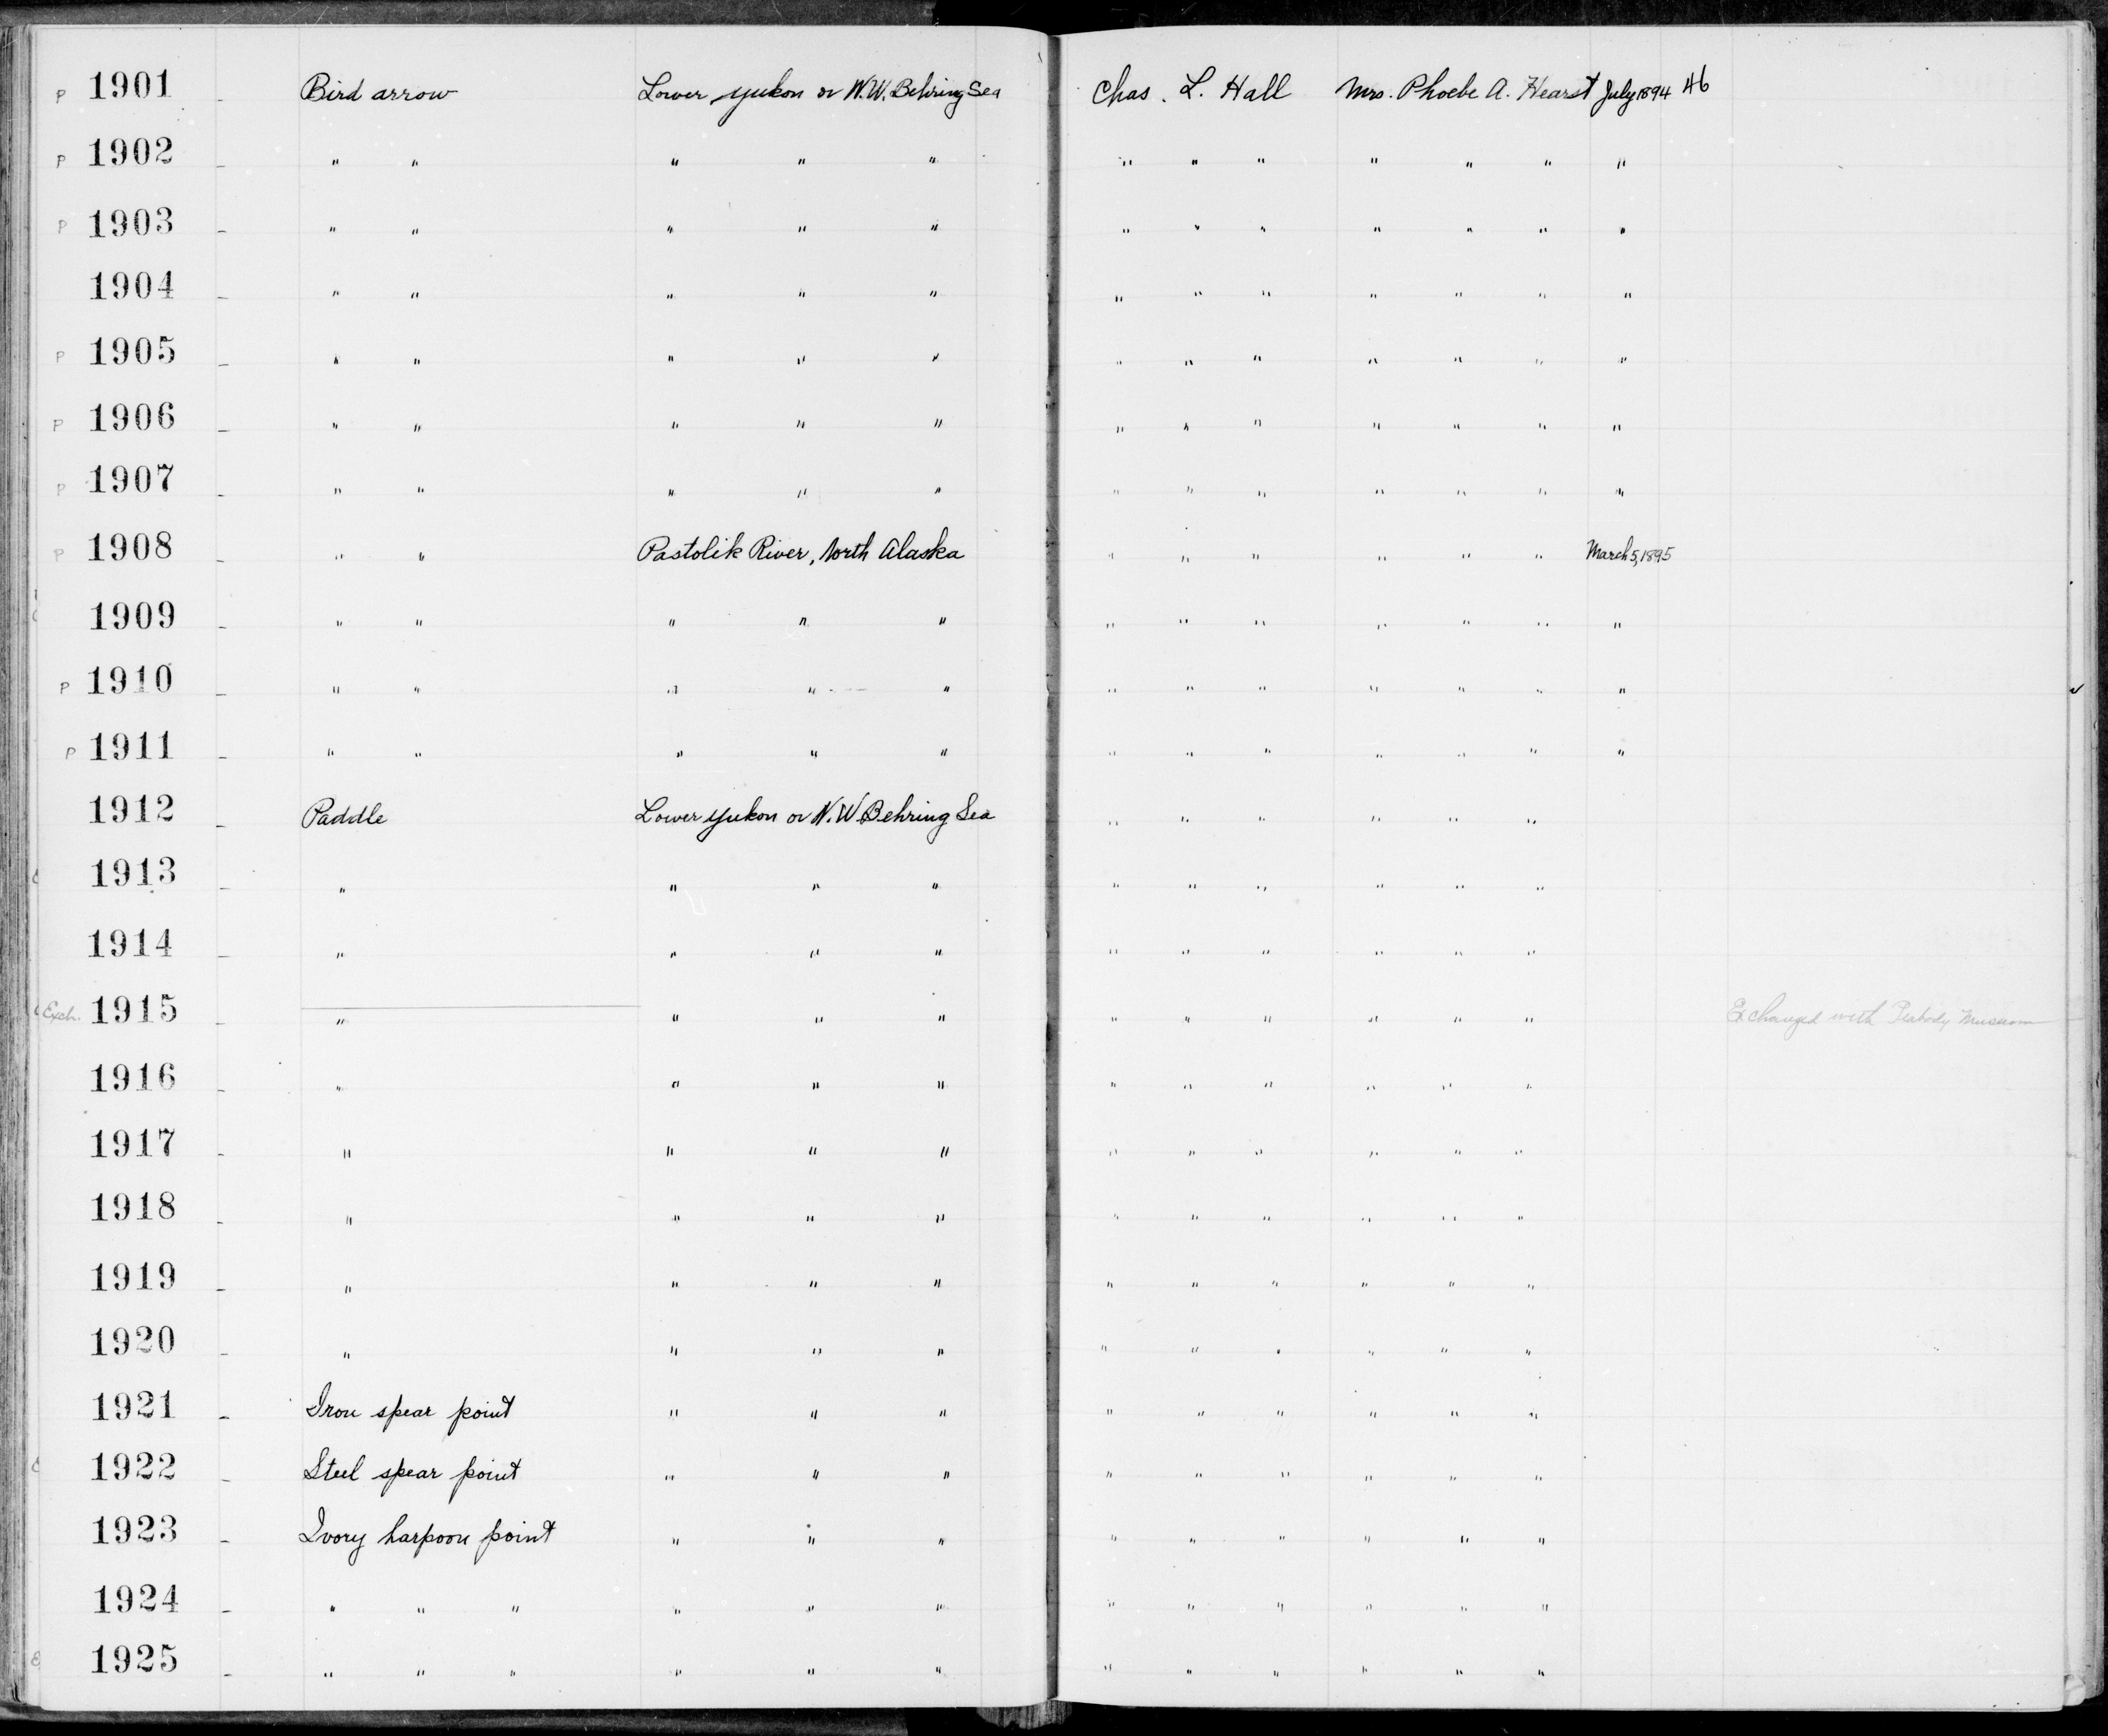 P 1901 - Bird arrow Lower Yukon or N.W. Behring Sea Chas. L. Hall Mrs. Phoebe A. Hearst July 1894 46
P 1902 - " " " " " " " " " " " "
P 1903 - " " " " " " " " " " " "
1904 - " " " " " " " " " " " "
P 1905 - " " " " " " " " " " " "
P 1906 - " " " " " " " " " " " "
P 1907 - " " " " " " " " " " " "
P 1908 - " " Pastolik River, North Alaska " " " " " " March 5, 1895
1909 - " " " " " " " " " " " "
P 1910 - " " " " " " " " " " " "
P 1911 - " " " " " " " " " " " "
1912 - Paddle Lower Yukon or N.W. Behring Sea " " " " " "
1913 - " " " " " " " " " "
1914 - " " " " " " " " " "
Exch. 1915 - " " " " " " " " " " Exchanged with Peabody Museum
1916 - " " " " " " " " " "
1917 - " " " " " " " " " "
1918 - " " " " " " " " " "
1919 - " " " " " " " " " "
1920 - " " " " " " " " " "
1921 - Iron spear point " " " " " " " " "
1922 - Steel spear point " " " " " " " " "
1923 - Ivory harpoon point " " " " " " " " "
1924 - " " " " " " " " " " " "
1925 - " " " " " " " " " " " "